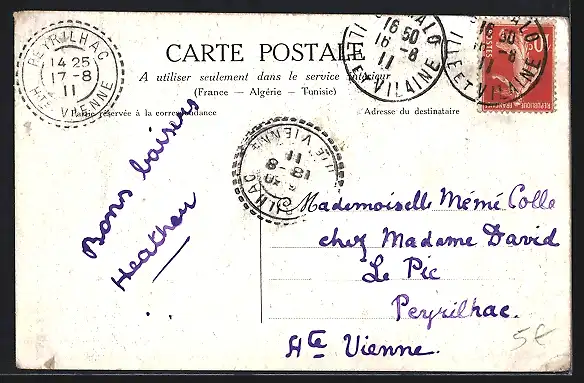 PEYRILHAC
14 25
17-8
11
HTE VIENNE
CARTE POSTALE
A utiliser seulement dans le service intérieur
(France — Algérie — Tunisie)
Partie réservée à la correspondance
Adresse du destinataire
16 50
16 -8
11
ILLE ET VILAINE
16 50
-8
11
ILLE ET VILAINE
10
POSTES
HTE VIENNE
11
18-8
Bons baisers
Heathan
Mademoiselle Mémé Colle
chez Madame David
Le Pic
Peyrilhac.
Hte Vienne.
5€